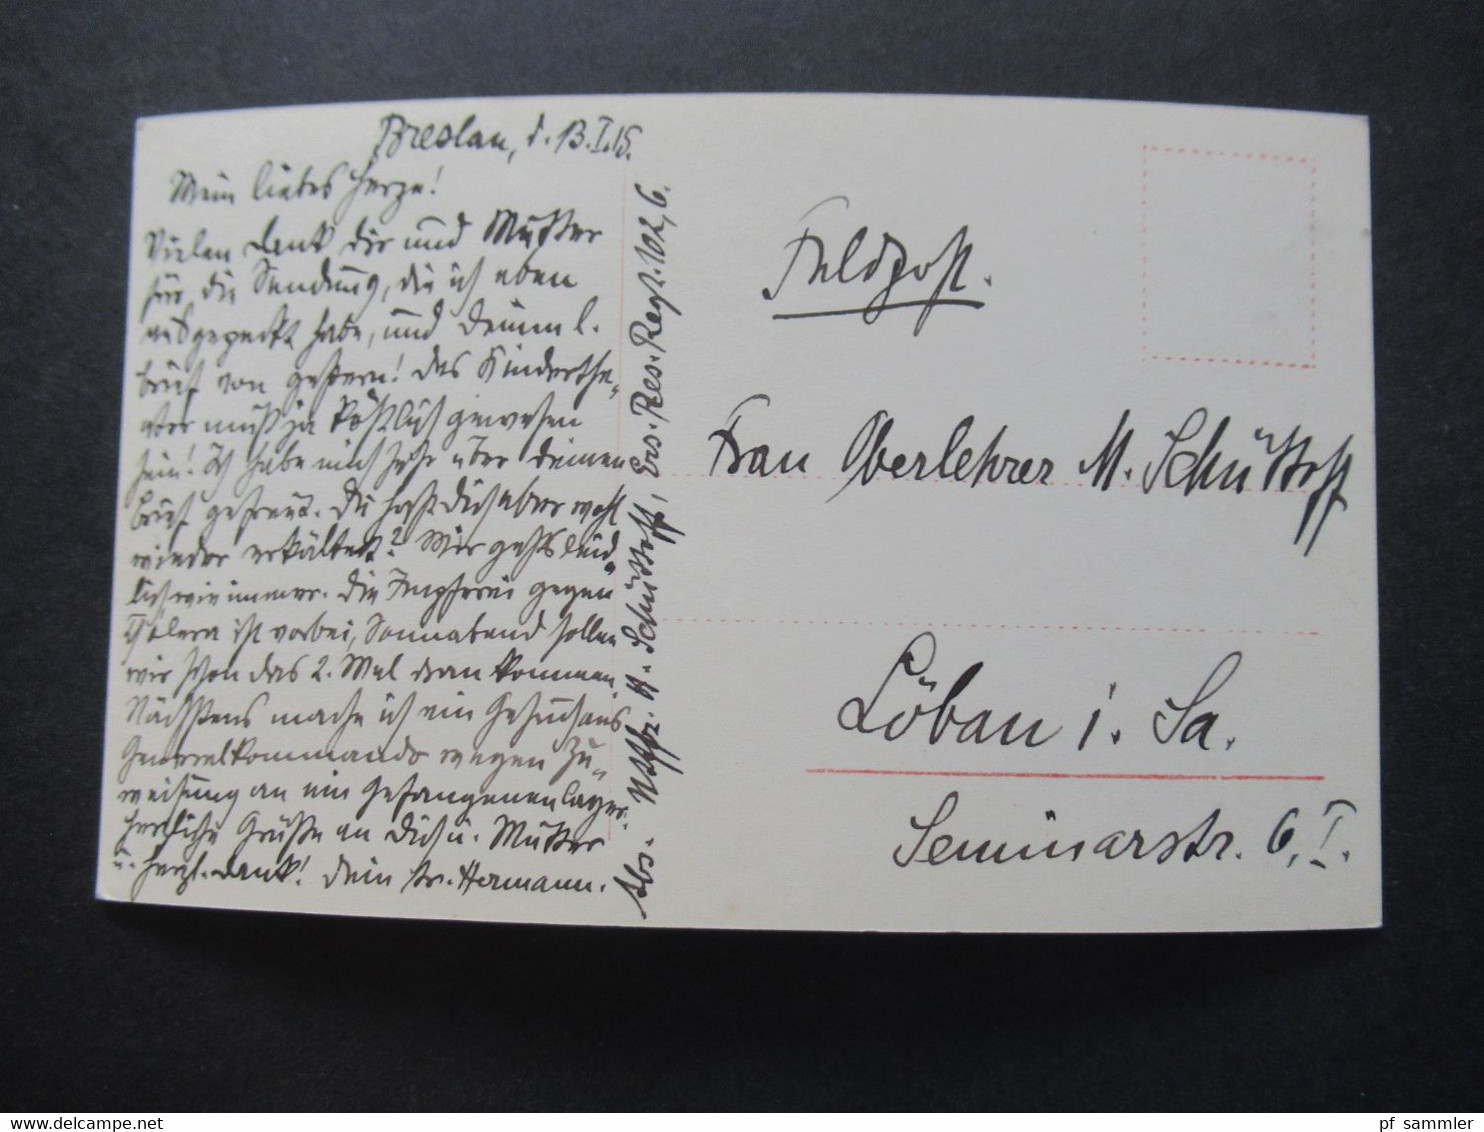 Breslau, d. 13.I.15.
Mein liebes Herze!
Vielen Dank dir und Mutter
für die Sendung, die ich eben
ausgepackt habe, und deinen l.
Brief von gestern! Das Kinderthe-
ater muß ja köstlich gewesen
sein! Ich habe mich sehr über deinen
Brief gefreut. Du hast dich aber wohl
wieder erkältet? Mir gehts leid-
lich wie immer. Die Impferei gegen
Cholera ist vorbei, Sonnabend sollen
wir schon das 2. Mal dran kommen.
Nächstens mache ich ein Gesuch ans
Generalkommando wegen Zu-
weisung an ein Gefangenenlager.
Herzliche Grüße an dich u. Mutter
u. herzl. Dank! Dein tr. Hermann.
Abs. H. Schüttoff, Ers. Res. Regt. 102, 6.
Feldpost.
Frau Oberlehrer M. Schüttoff
Löbau i. Sa.
Seminarstr. 6, I.
www.delcampe.net
pf_sammler